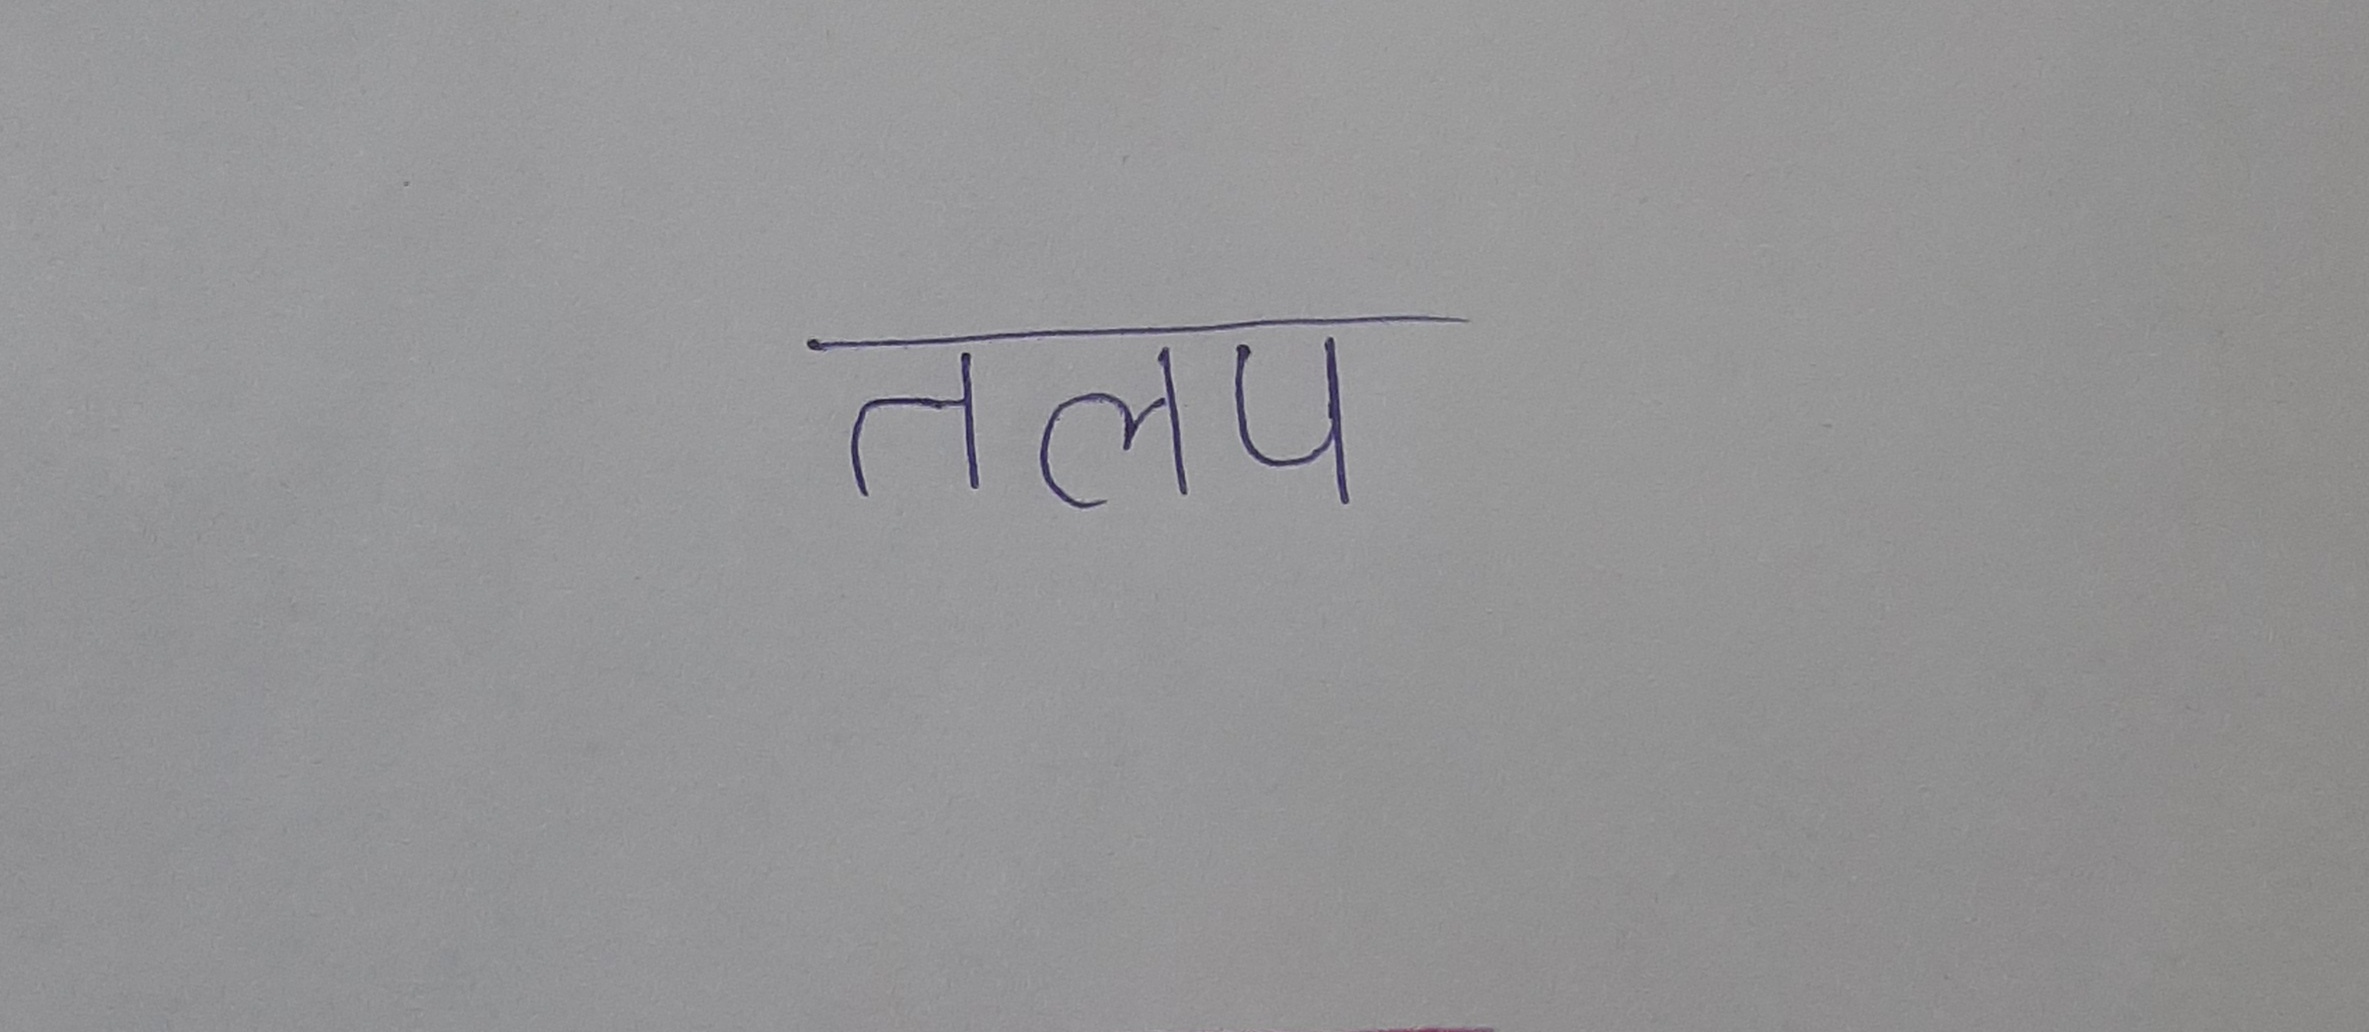 तलप